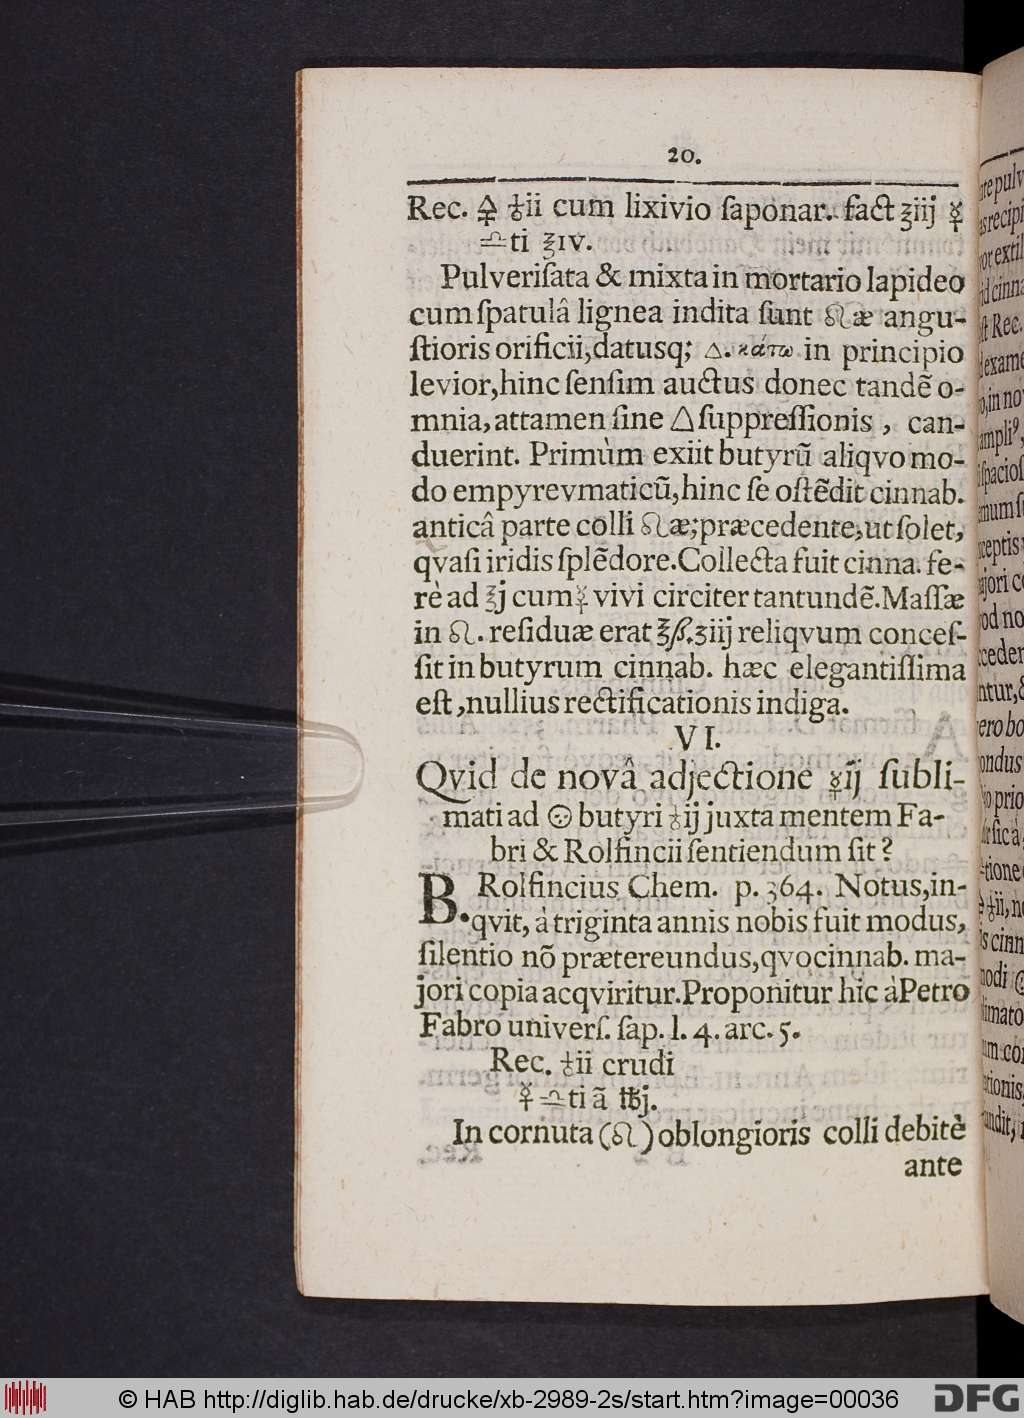 20.
Rec. 🜍 ♁ii cum lixivio ſaponar. fact ʒiij ☿
♎ti ℥IV.
Pulveriſata & mixta in mortario lapideo
cum ſpatulâ lignea indita ſunt ♌æ angu-
ſtioris orificii, datusq; 🜂. κάτω in principio
levior, hinc ſenſim auctus donec tandẽ o-
mnia, attamen ſine 🜂 ſuppreſſionis, can-
duerint. Primùm exiit butyrũ aliqvo mo-
do empyrevmaticũ, hinc ſe oſtẽdit cinnab.
anticâ parte colli ♌æ; præcedente, ut ſolet,
qvaſi iridis ſplẽdore. Collecta fuit cinna. fe-
rè ad ℥j cum ☿ vivi circiter tantundẽ. Maſſæ
in ♌. reſiduæ erat ℥ß. ʒiij reliqvum conceſ-
ſit in butyrum cinnab. hæc elegantiſſima
eſt, nullius rectificationis indiga.
VI.
Qvid de novâ adjectione ☿ij ſubli-
mati ad butyri ♁ij juxta mentem Fa-
bri & Rolfincii ſentiendum ſit?
B. Rolfincius Chem. p. 364. Notus, in-
qvit, à triginta annis nobis fuit modus,
ſilentio nõ prætereundus, qvo cinnab. ma-
jori copia acqviritur. Proponitur hic à Petro
Fabro univerſ. ſap. l. 4. arc. 5.
Rec. ♁ii crudi
☿ ♎ti ã ℔j.
In cornuta (♌) oblongioris colli debitè
ante
© HAB http://diglib.hab.de/drucke/xb-2989-2s/start.htm?image=00036
DFG